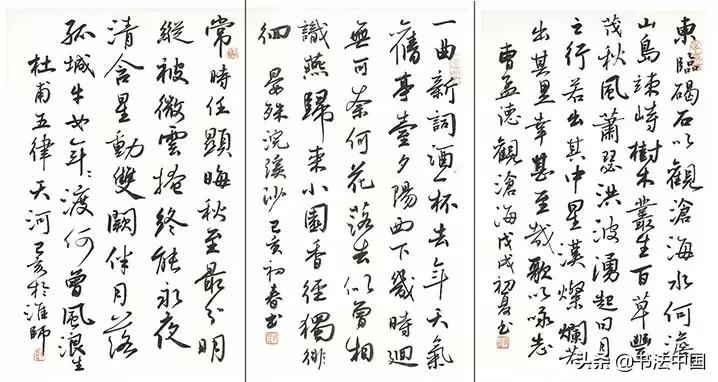 東臨碣石以觀滄海水何澹
山島竦峙樹木叢生百草豐
茂秋風蕭瑟洪波湧起日月
之行若出其中星漢燦爛若
出其里幸甚至哉歌以咏志
曹孟德觀滄海戊戌初夏
一曲新詞酒一杯去年天氣
舊亭臺夕陽西下幾時迴
無可奈何花落去似曾相
識燕歸來小園香徑獨徘
徊 晏殊浣溪沙己亥初春
常時任顯晦秋至最分明
縱被微雲掩終能永夜
清含星動雙闕伴月落
孤城牛女年年渡何曾風浪生
杜甫五律天河己亥於淮師
头条 @书法中国